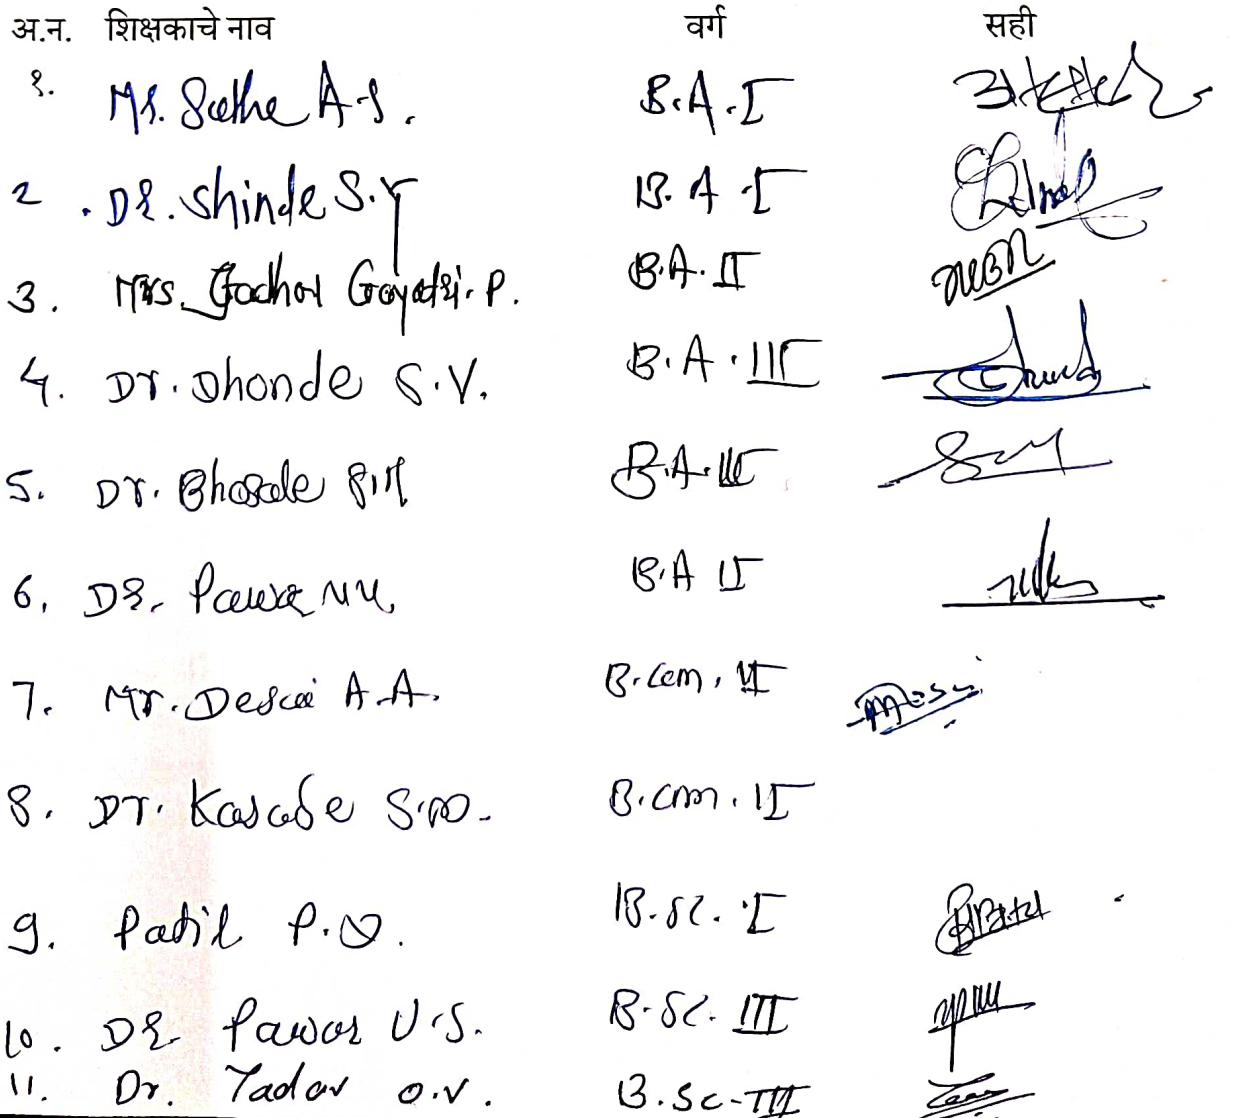 अ.न. शिक्षकाचे नाव वर्ग सही
१. Ms. Sathe A.S. B.A.I
2. Dr. Shinde S.Y B.A.I
3. Mrs. Jadhav Gayatri. P. B.A. II
4. Dr. Dhonde S.V. B.A. III
5. Dr. Bhosale S.M B.A. III
6. Dr. Pawar N U. B.A II
7. Mr. Desai A.A. B.com. II
8. Dr. Kasabe S.D. B.com. II
9. Patil P.D. B.Sc. I
10. Dr. Pawar U.S. B.Sc. III
11. Dr. Yadav O.V. B.Sc-III